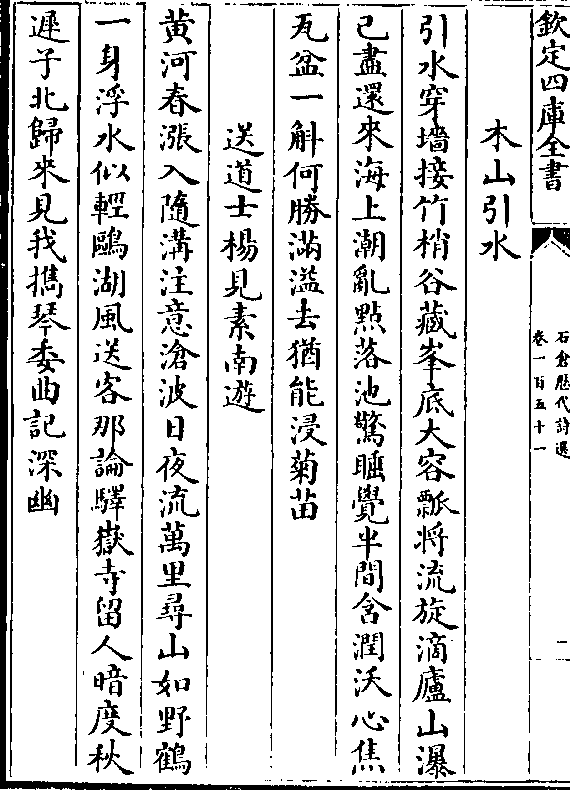 欽定四庫全書
石倉歷代詩選
卷一百五十一
一
木山引水
引水穿墻接竹梢谷藏峯底大容瓢将流旋滴廬山瀑
已盡還來海上潮亂㸃落池驚睡覺半間含潤沃心焦
瓦盆一斛何勝滿溢去猶能浸菊苗
送道士楊見素南遊
黄河春漲入隨溝注意滄波日夜流萬里尋山如野鶴
一身浮水似輕鷗湖風送客那論驛嶽寺留人暗度秋
遲子北歸來見我攜琴委曲記深幽